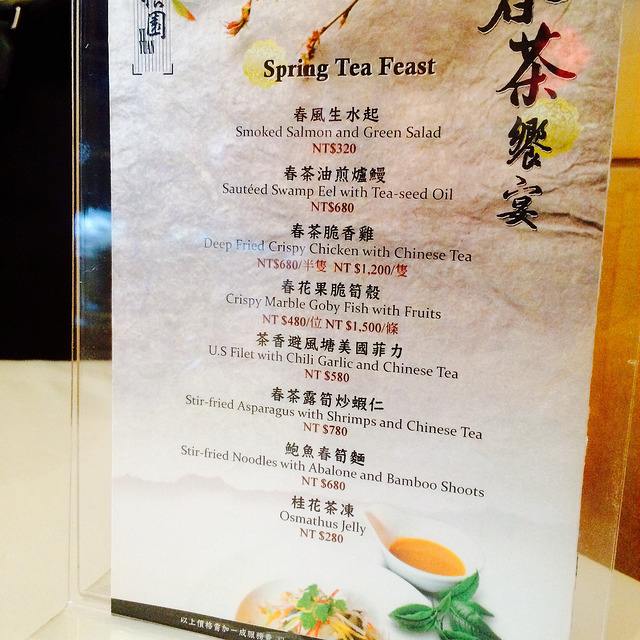 園
YUAN
春茶饗宴
Spring Tea Feast
春風生水起
Smoked Salmon and Green Salad
NT$320
春茶油煎爐鰻
Sautéed Swamp Eel with Tea-seed Oil
NT$680
春茶脆香雞
Deep Fried Crispy Chicken with Chinese Tea
NT$680/半隻 NT $1,200/隻
春花果脆筍殼
Crispy Marble Goby Fish with Fruits
NT $480/位 NT $1,500/條
茶香避風塘美國菲力
U.S Filet with Chili Garlic and Chinese Tea
NT $580
春茶露筍炒蝦仁
Stir-fried Asparagus with Shrimps and Chinese Tea
NT $780
鮑魚春筍麵
Stir-fried Noodles with Abalone and Bamboo Shoots
NT $680
桂花茶凍
Osmathus Jelly
NT $280
以上價格需加一成服務費